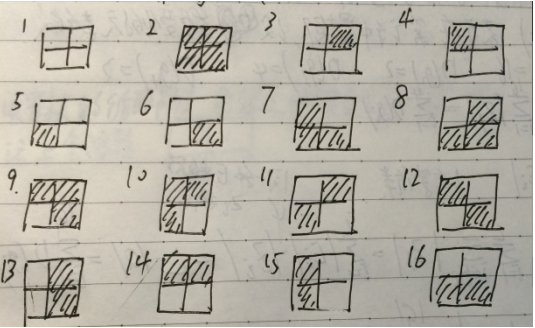 1 2 3 4
5 6 7 8
9. 10 11 12
13 14 15 16